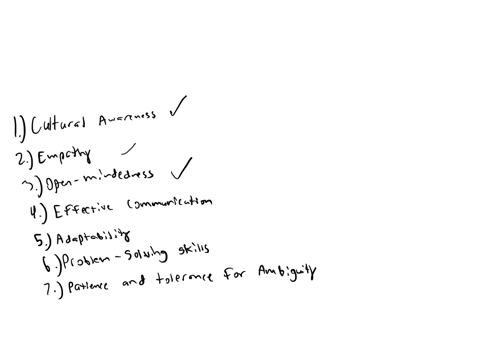 1.) Cultural Awareness ✓
2.) Empathy ✓
3.) Open-mindedness ✓
4.) Effective Communication
5.) Adaptability
6.) Problem-Solving Skills
7.) Patience and tolerance for Ambiguity